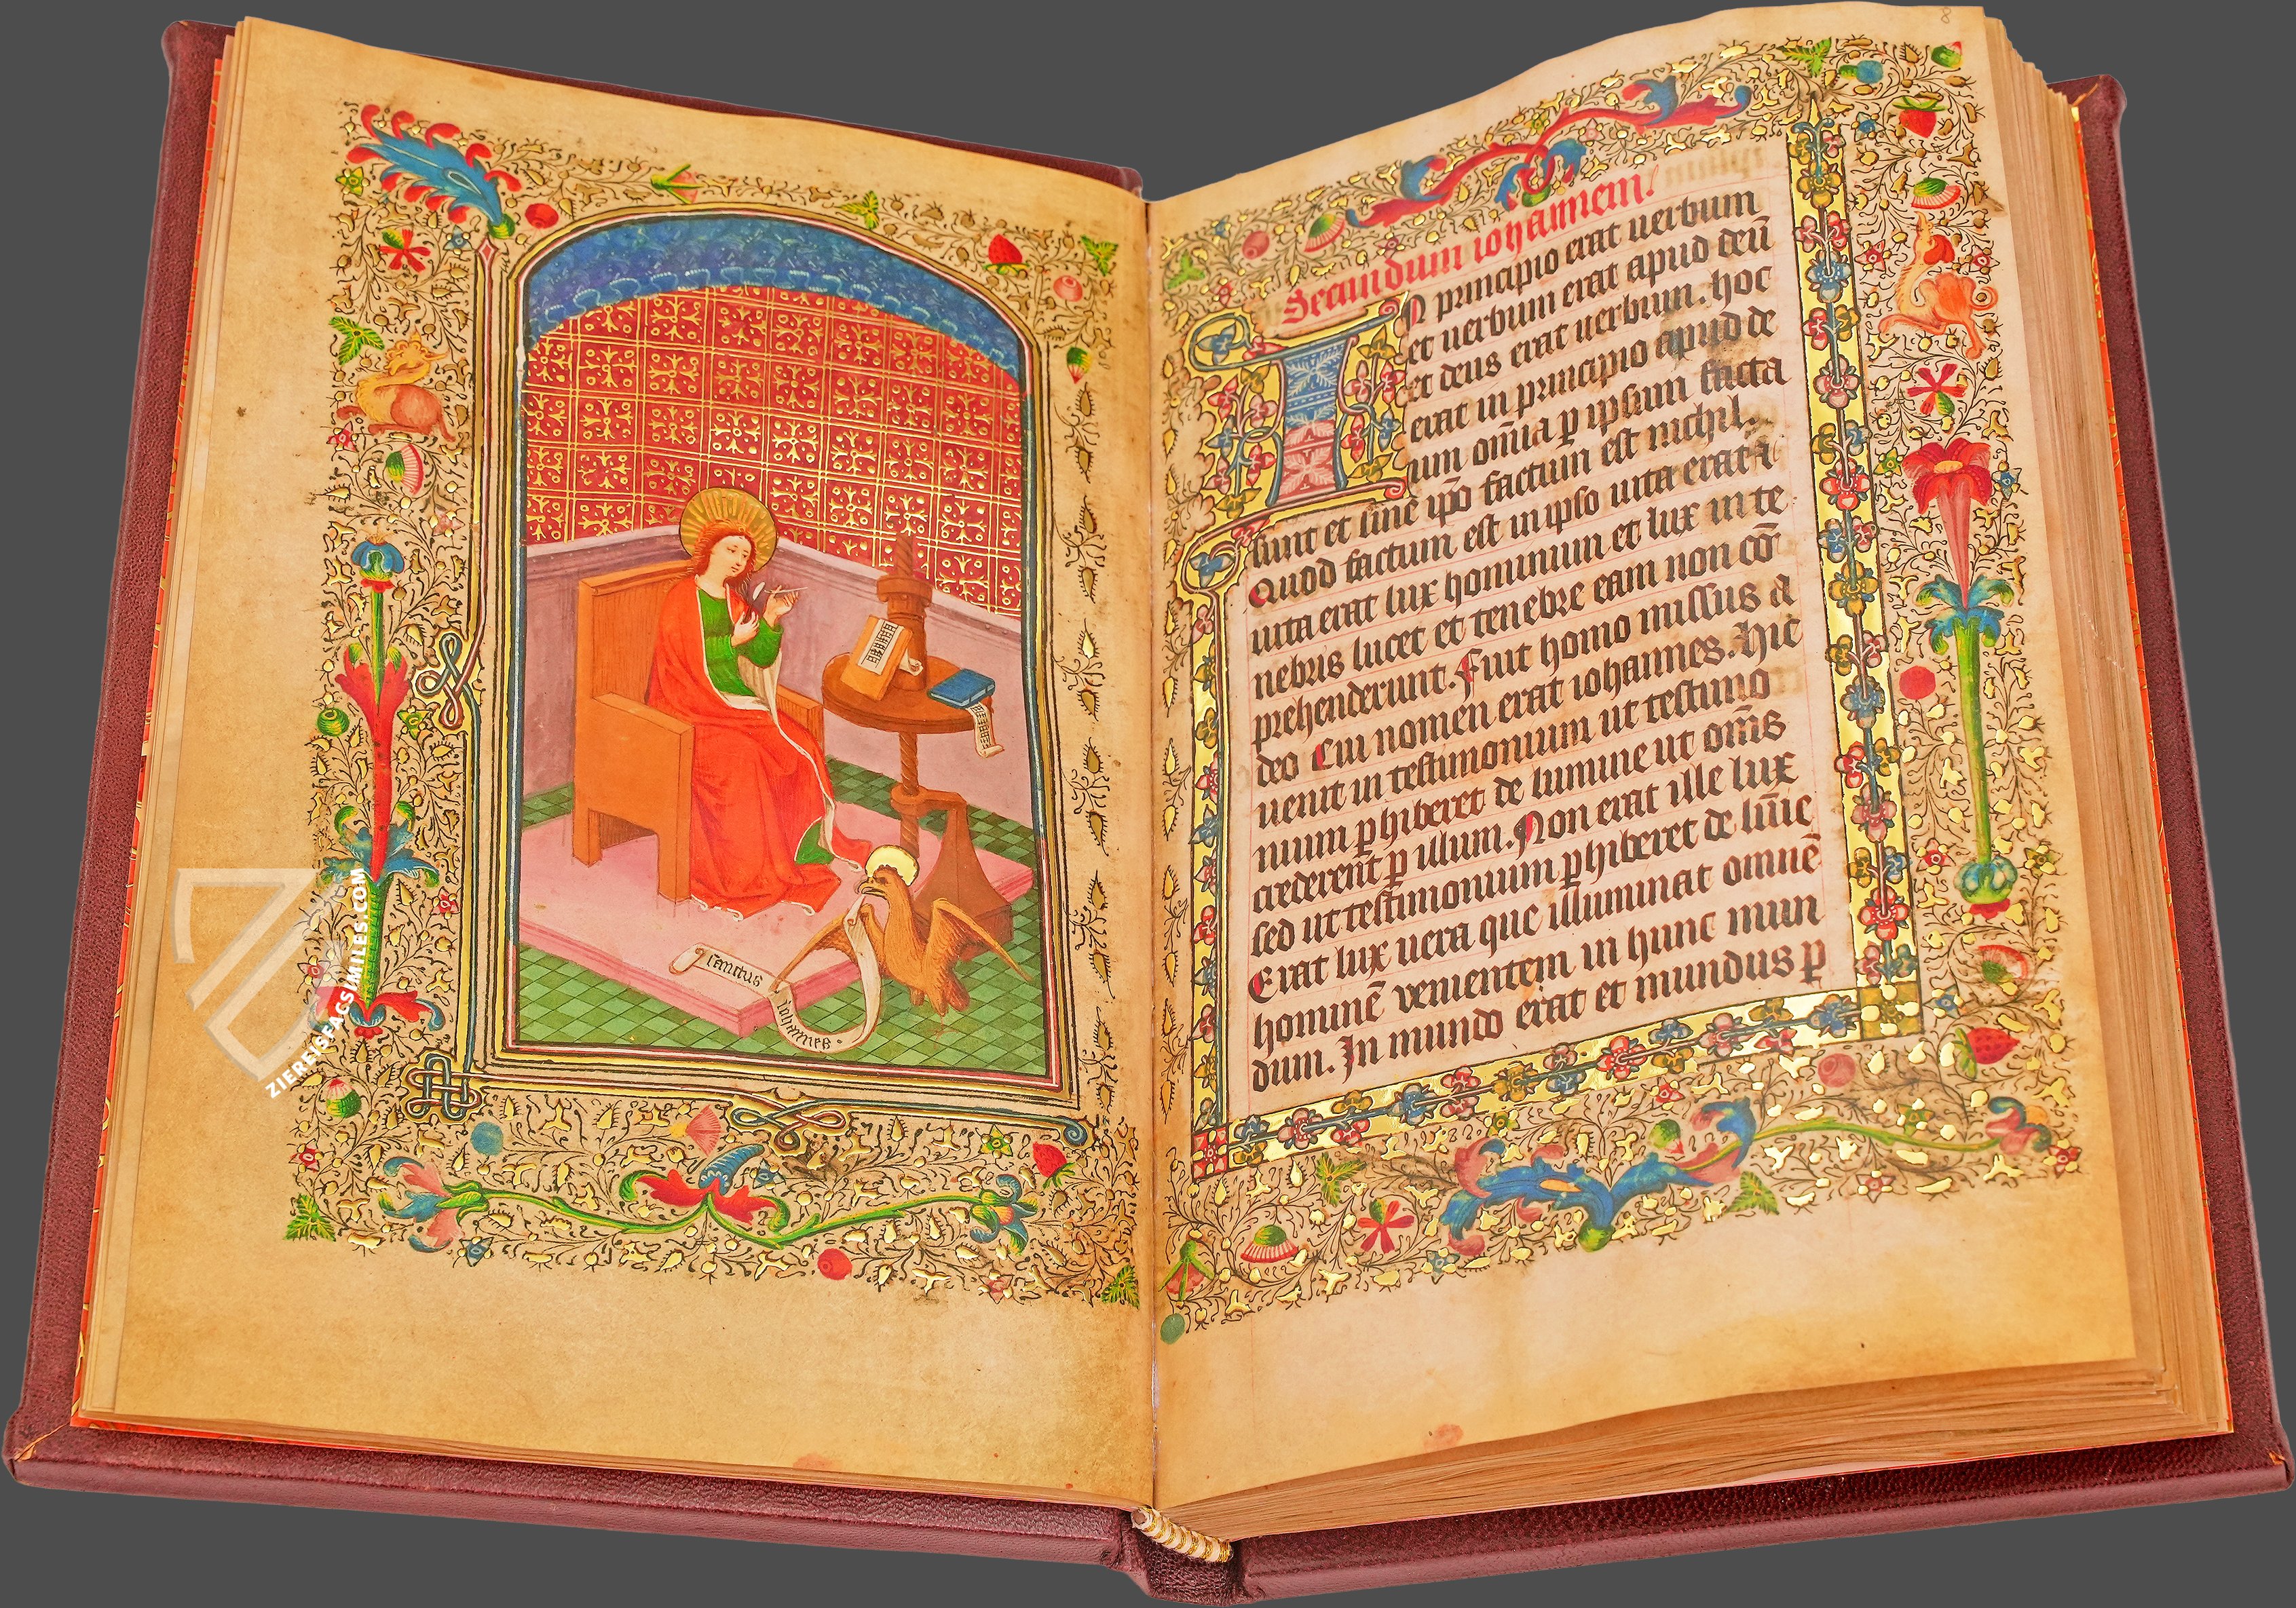 sanctus
iohannes.
ZIEREIS FACSIMILES.COM
Secundum iohannem.
IN principio erat uerbum
et uerbum erat apud deū
et deus erat uerbum. hoc
erat in principio apud de
um omīa ꝑ ipsum facta
sunt et sine ip̄o factum est nichil.
Quod factum est in ipso uita erat ⁊
uita erat lux hominum et lux in te
nebris lucet et tenebre eam non cō
prehenderunt. Fuit homo missus a
deo Cui nomen erat iohannes. Hic
uenit in testimonium ut testimo
nium ꝑhiberet de lumine ut om̄s
crederent ꝑ illum. Non erat ille lux
sed ut testimonium ꝑhiberet de lūīe
Erat lux uera que illuminat omnē
hominē venientem in hunc mun
dum. In mundo erat et mundus ꝑ